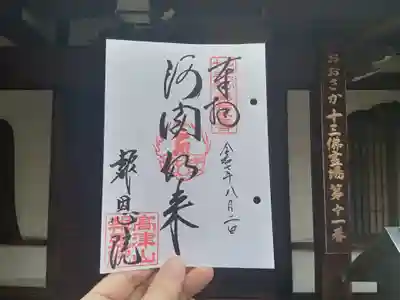 奉拝
阿閦如来
令和七年八月二日
報恩院
高津山
おおさか十三佛霊場第十一番